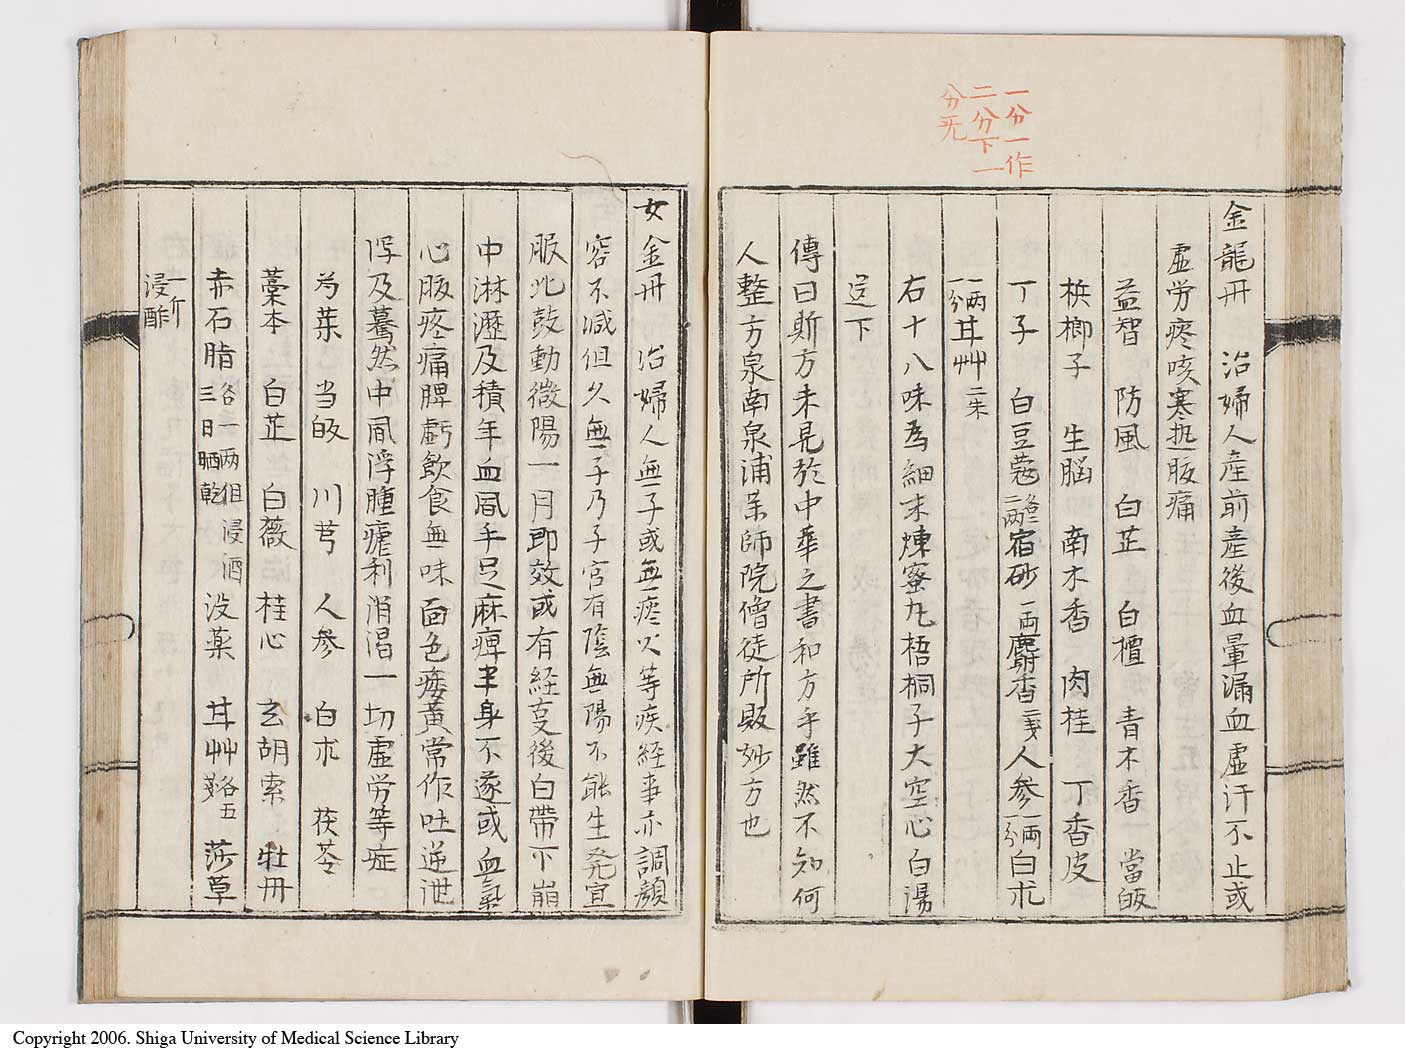 一分一作
二分下一
分旡
金龍丹　治婦人產前產後血暈漏血虛汗不止或
虛労疼咳寒热腹痛
益智　防風　白芷　白檀　青木香　當皈
梹榔子　生脳　南木香　肉桂　丁香皮
丁子　白豆蔻各三両二宿砂一両麝香二戔人參一両一分白朮
一両一分甘艸二朱
右十八味為細末煉蜜丸梧桐子大空心白湯
送下
傳曰斯方未見於中華之書和方乎雖然不知何
人整方泉南泉浦呆師院僧徒所販妙方也
女金丹　治婦人無子或無痰火等疾経事亦調顏
容不減但久無子乃子宮有陰無陽不能生発宜
服此鼓動微陽一月即效或有経変後白帶下崩
中淋瀝及積年血風手足麻痺半身不遂或血氣
心腹疼痛脾虧飲食無味面色痿黃常作吐逆泄
浮及驀然中風浮腫瘧利消渇一切虛労等症
芍薬　当皈　川芎　人參　白朮　茯苓
藁本　白芷　白薇　桂心　玄胡索　牡丹
赤石脂各一両俱浸酒三日晒乾沒薬　甘艸各五　莎草
一斤浸酢
Copyright 2006. Shiga University of Medical Science Library